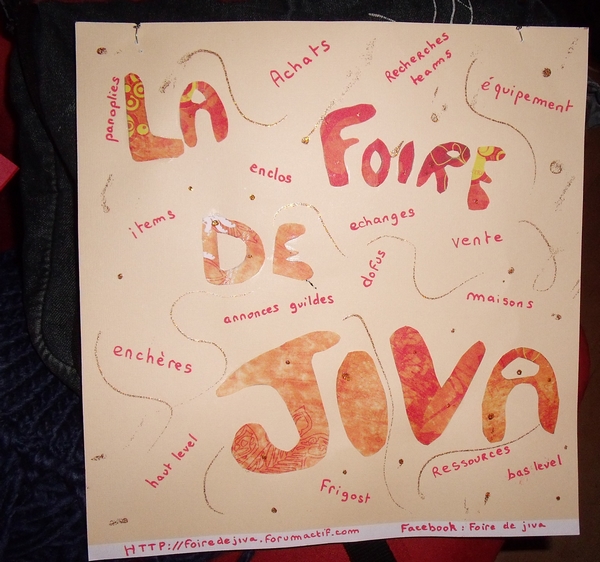 panoplies
LA
Achats
Recherches
teams
équipement
FOIRE
enclos
items
DE
echanges
vente
dofus
annonces guildes
maisons
enchères
JIVA
haut level
Frigost
Ressources
bas level
HTTP://foiredejiva.forumactif.com
Facebook: Foire de jiva